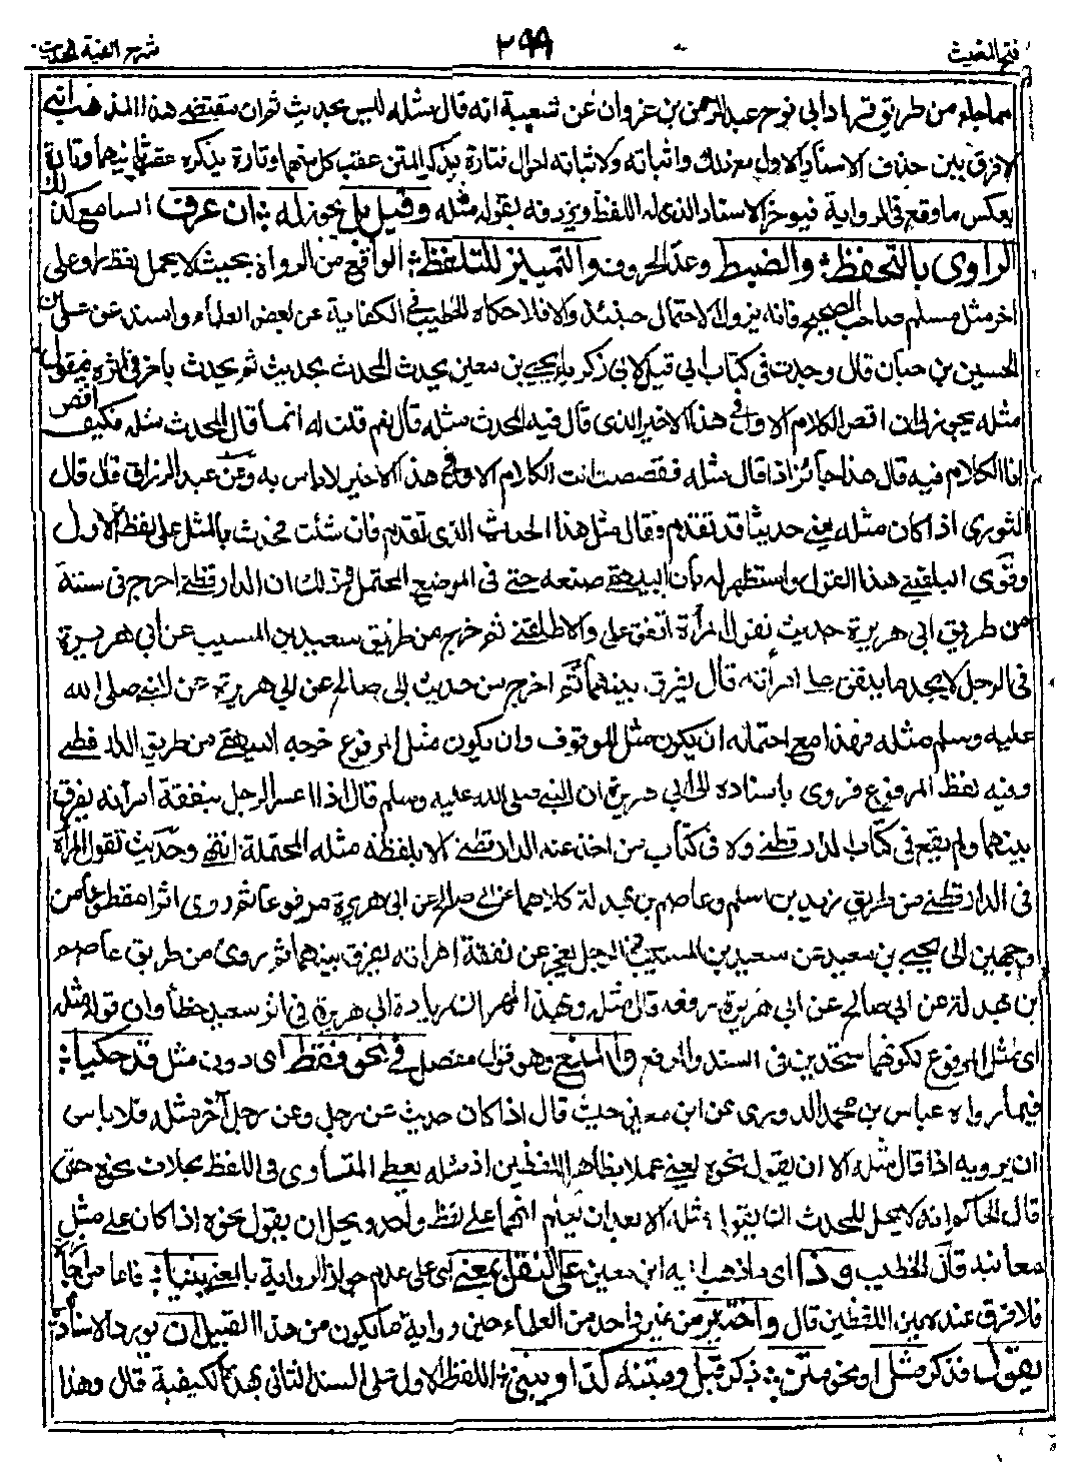 فتح المغيث ٢٩٩ شرح الفية الحديث
مما جاء من طريق قراد ابي نوح عبد الرحمن بن غزوان عن شعبة انه قال مثله ليس بحديث ثم ان مقتضى هذا المذهب انه
لا فرق بين حذف الاسناد الاول مع ذلك واثباته ولاثباته احوال فتارة يذكر المتن عقب كل منهما وتارة يذكره عقب ثانيهما وتارة
يعكس ما وقع في الرواية فيوخر الاسناد الذي له اللفظ ويردفه بقوله مثله وقيل بل جوز له ان عرف السامع كذلك
الراوي بالتحفظ والضبط وعد الحروف والتمييز للتلفظ الواقع من الرواة بحيث لا يحمل لفظ راو على
اخر مثل مسلم صاحب الصحيح فانه يزول الاحتمال حينئذ والا فلا حكاه الخطيب في الكفاية عن بعض العلماء واسند عن علي بن
الحسين بن حبان قال وجدت في كتاب ابي قيل لابي زكريا يحيى بن معين يحدث المحدث بحديث ثم يحدث باخر في اثره فيقول
مثله يجوز لي ان اقص الكلام الاول في هذا الاخير الذي قال فيه المحدث مثله قال نعم قلت له انما قال المحدث مثله فكيف اقص
انا الكلام فيه قال هذا جائز اذا قال مثله فقصصت انت الكلام الاول في هذا الاخير لا باس به وعن عبد الرزاق قال قال
الثوري اذا كان مثله يعني حديثا قد تقدم وقال مثل هذا الحديث الذي تقدم فان شئت فحدث بالمثل على لفظ الاول
وقوى البلقيني هذا القول واستظهر له بأن البيهقي صنعه حتى في الموضع المحتمل فمن ذلك ان الدارقطني اخرج في سننه
من طريق ابي هريرة حديث تقول المرأة انفق علي والا طلقني ثم خرج من طريق سعيد بن المسيب عن ابي هريرة
في الرجل لا يجد ما ينفق على امرأته قال يفرق بينهما ثم اخرج من حديث ابي صالح عن ابي هريرة عن النبي صلى الله
عليه وسلم مثله فهذا مع احتماله ان يكون مثل الموقوف وان يكون مثل المرفوع خرجه البيهقي من طريق الدارقطني
وفيه لفظ المرفوع فروى باسناده الى ابي هريرة ان النبي صلى الله عليه وسلم قال اذا اعسر الرجل بنفقة امرأته يفرق
بينهما ولم يقع في كتاب الدارقطني ولا في كتاب من اخذ عنه الدارقطني الا بلفظه مثله المحتملة انتهى وحديث تقول المرأة
في الدارقطني من طريق زيد بن اسلم وعاصم بن بهدلة كلاهما عن ابي صالح عن ابي هريرة مرفوعا ثم روى اثرا مقطوعا من
وجهين الى يحيى بن سعيد عن سعيد بن المسيب في الرجل يعجز عن نفقة امراته يفرق بينهما ثم روى من طريق عاصم
ابن بهدلة عن ابي صالح عن ابي هريرة يرفعه قال مثله وبهذا ظهر ان زيادة ابي هريرة في اثر سعيد خطأ وان قوله مثله
اي مثل المرفوع لكونهما متحدين في السند والرفع والمنع وهو قول مفصل في نحو فقط اي دون مثل قد حكيا
فيما رواه عباس بن محمد الدوري عن ابن معين حيث قال اذا كان حديث عن رجل وعن رجل آخر مثله فلا باس
ان يرويه اذا قال مثله الا ان يقول نحوه يعني عملا بظاهر اللفظين اذ مثله يعطي التساوي في اللفظ بخلاف نحوه حتى
قال الحاكم انه لا يحل للمحدث ان يقول مثله الا بعد ان يعلم انهما على لفظ واحد ويحل ان يقول نحوه اذا كان على مثل
معانيه قال الخطيب وذا اي ما ذهب اليه ابن معين على النقل بمعنى اي على عدم جواز الرواية بالمعنى بنيا فاما من اجازه
فلا فرق عنده بين اللفظين قال واختير من غير واحد من العلماء حين رواية ما يكون من هذا القبيل ان يورد الاسناد
يقول فذكر مثل او نحو متن ذكر قبل ومتنه كذا ويبني اللفظ الاول على السند الثاني بهذه الكيفية قال وهذا